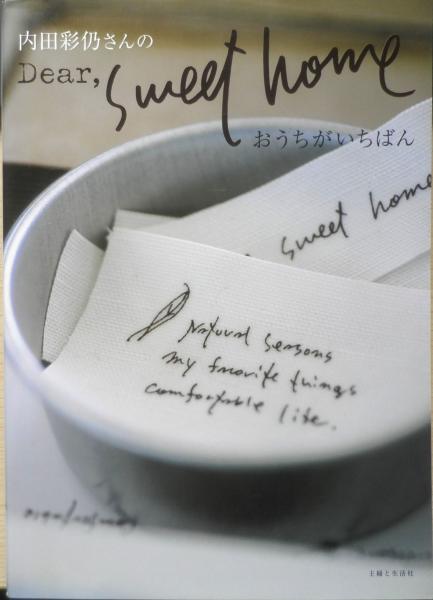 内田彩仍さんの
Dear,
sweet home
おうちがいちばん
sweet home
Natural seasons
my favorite things
comfortable life.
主婦と生活社